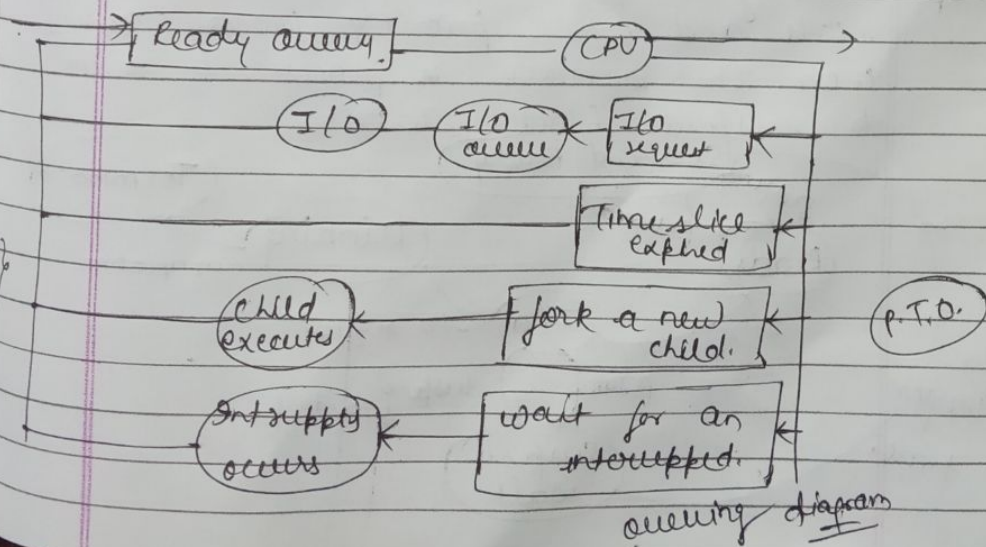 Ready queuy.
CPU
I/O
I/O
queue
I/O
request
Time slice
expired
child
executes
fork a new
child.
P.T.O.
Intruppty
occurs
wait for an
interrupped.
queuing diagram